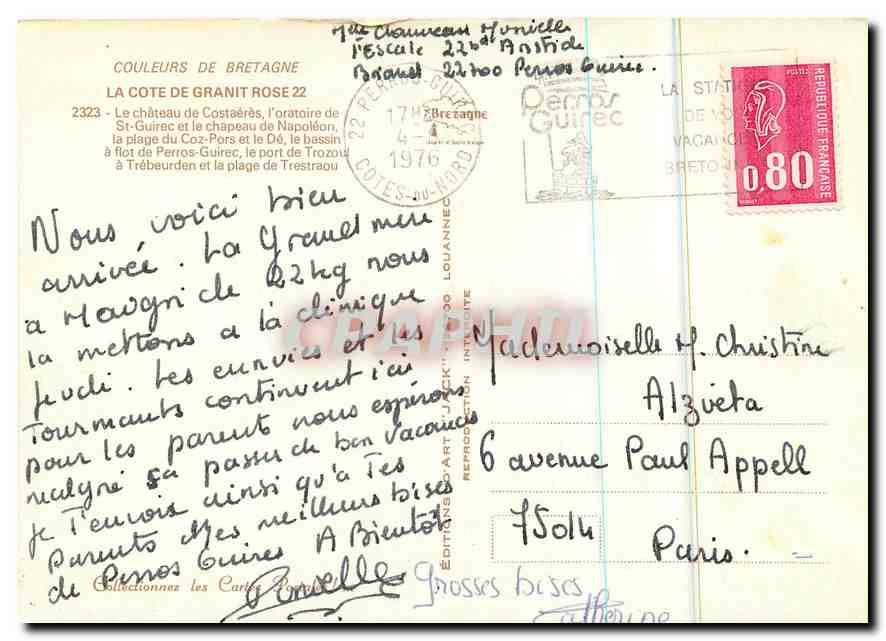 Mlle Chauveau Murielle
l'Escale 22 bd Aristide
Briand 22700 Perros Guirec.
COULEURS DE BRETAGNE
LA COTE DE GRANIT ROSE 22
2323 - Le château de Costaérès, l'oratoire de
St-Guirec et le chapeau de Napoléon,
la plage du Coz-Pors et le Dé, le bassin
à flot de Perros-Guirec, le port de Trozoul
à Trébeurden et la plage de Trestraou
22 PERROS-GUIREC
17H
4-
1976
COTES-DU-NORD
Bretagne
Perros
Guirec
LA STATI
DE VO
VACANCE
BRETON
POSTES
REPUBLIQUE FRANÇAISE
0,80
Nous voici bien
arrivée. La Grand mère
a Maigri de 22kg nous
la mettons a la clinique
Jeudi. Les ennvies et les
Tourmants continuent ici
pour les parents nous espérons
malgré sa passer de bon Vacances
Je T'envoie ainsi qu'a Tes
Parents Mes meilleurs bises
de Perros Guirec A Bientôt
Grosses bises
Catherine
Collectionnez les Cartes
EDITIONS D'ART "JACK" LOUANNEC
REPRODUCTION INTERDITE
CPAPHIL
Mademoiselle M. Christine
Alzueta
6 avenue Paul Appell
75014
Paris.